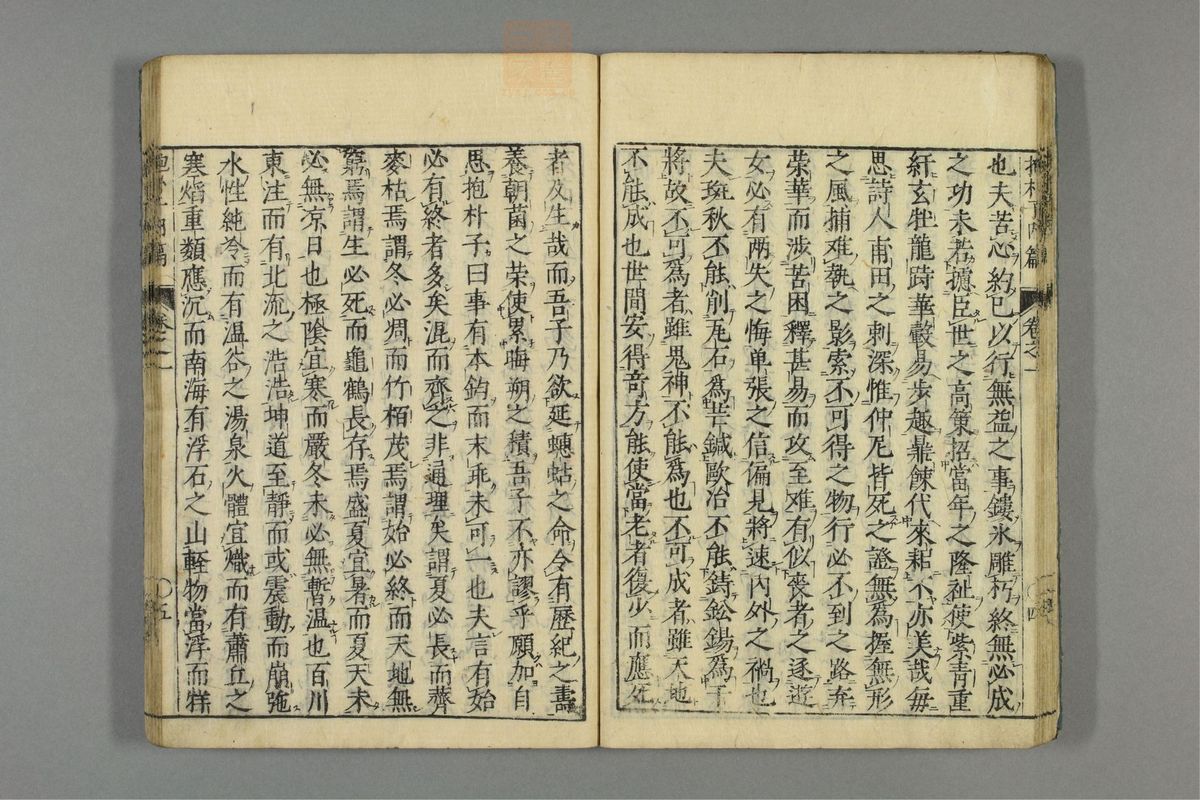 也夫苦心約己以行無益之事鏤氷雕朽終無必成
之功未若攄匡世之高策招當年之隆祉使紫青重
紆玄牡龍跱華轂易歩趍鼎餗代來耜不亦美哉毎
思詩人甫田之刺深惟仲尼皆死之證無為握無形
之風捕难執之影索不可得之物行必不到之路弃
荣華而涉苦困釋甚易而攻至难有似喪者之逐遊
女必有两失之悔单張之信偏見將速内外之禍也
夫班秋不能削瓦石為芒鍼歐冶不能鋳鈆錫為干
將故不可為者雖鬼神不能為也不可成者雖天地
不能成也世間安得竒方能使當老者復少而應死
者反生哉而吾子乃欲延蟪蛄之命令有歷紀之壽
養朝菌之荣使累晦朔之積吾子不亦謬乎願加自
思抱朴子曰事有本鈞而末乖未可一也夫言有始
必有終者多矣混而齊之非通理矣謂夏必長而薺
麥枯焉謂冬必凋而竹栢茂焉謂始必終而天地無
窮焉謂生必死而龜鶴長存焉盛夏宜暑而夏天未
必無凉日也極陰宜寒而嚴冬未必無暫温也百川
東注而有北流之浩浩坤道至静而或震動而崩弛
水性純冷而有温谷之湯泉火體宜熾而有蕭丘之
寒熖重類應沉而南海有浮石之山軽物當浮而牂
卷之一
〇四
卷之一
〇五